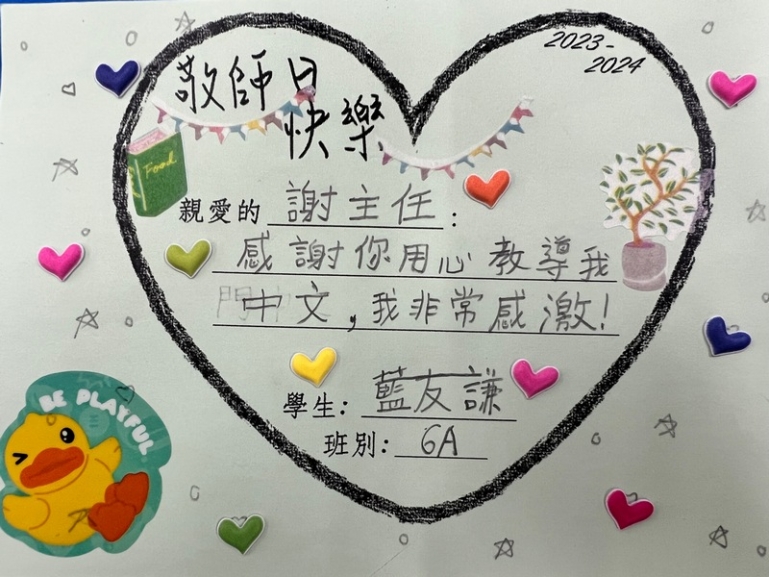 2023-
2024
敬師日
快樂
Food
親愛的 謝主任:
感謝你用心教導我
中文,我非常感激!
學生: 藍友謙
班別: 6A
BE PLAYFUL